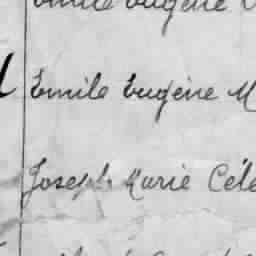 Emile Eugène
Emile Eugène M
Joseph Marie Céle